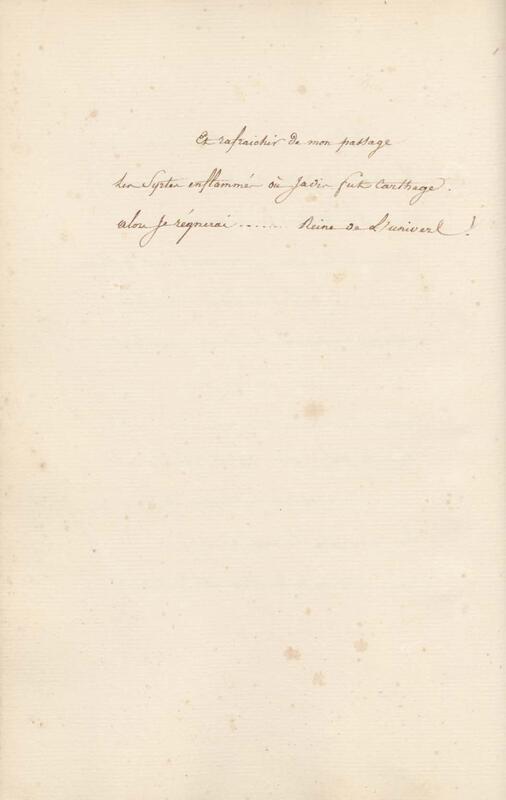 Et rafraichir de mon passage
Les Syrtes enflammés où Jadis fut Carthage.
alors Je régnerai ...... Reine de L'univers !